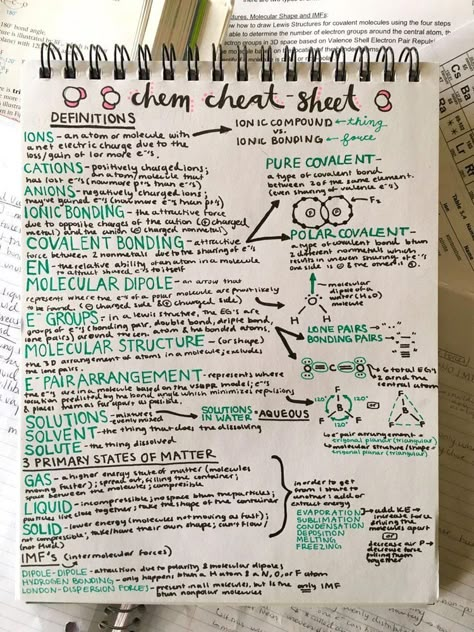 ctures, Molecular Shape and IMFs:
how to draw Lewis Structures for covalent molecules using the four steps
able to determine the number of electron groups around the central atom,
ectron groups in 3D space based on Valence Shell Electron Pair Repul
chem cheat-sheet
DEFINITIONS
IONS - an atom or molecule with
a net electric charge due to the
loss/gain of 1 or more e⁻'s
IONIC COMPOUND ← thing
vs.
IONIC BONDING ← force
CATIONS - positively charged ions;
an atom/molecule that
has lost e⁻'s (now more p⁺'s than e⁻'s)
ANIONS - negatively charged ions;
they've gained e⁻'s (now more e⁻'s than p⁺'s)
IONIC BONDING - the attractive force
due to opposite charges of the cation (⊕ charged
metal) and the anion (⊖ charged nonmetal)
COVALENT BONDING - attractive
force between 2 nonmetals due to the sharing of e⁻'s
PURE COVALENT -
a type of covalent bond
between 2 of the same element.
(even sharing of valence e⁻'s)
F F
F₂
POLAR COVALENT -
a type of covalent bond btwn
2 different nonmetals which
results in uneven sharing of e⁻'s
one side is ⊕ & the other is ⊖.
EN - the relative ability of an atom in a molecule
to attract shared e⁻'s to itself
MOLECULAR DIPOLE - an arrow that
represents where the e⁻'s of a polar molecule are most likely
to be found (⊕ charged side & ⊖ charged side)
O
H H
molecular
dipole of a
water (H₂O)
molecule
E⁻ GROUPS - in a lewis structure, the EG's are
groups of e⁻'s (bonding pair, double bond, triple bond,
lone pairs) around the cen. atom & the bonded atoms.
LONE PAIRS →
BONDING PAIRS →
MOLECULAR STRUCTURE - (or shape)
the 3D arrangement of atoms in a molecule; excludes
the lone pairs.
O = C = O
6 total EG's
2 around the
central atom
E⁻ PAIR ARRANGEMENT - represents where
the e⁻'s are in a molecule based on the VSEPR model; e⁻'s
location predicted by the bond angle which minimizes repulsions
& places them as far apart as possible.
F
120° 120°
B
F F
120°
or
F
B
F F
e⁻ pair arrangement =
trigonal planar (triangular)
molecular structure (shape) =
trigonal planar (triangular)
SOLUTIONS - mixtures
evenly mixed
→ SOLUTIONS
IN WATER = AQUEOUS
SOLVENT - the thing that does the dissolving
SOLUTE - the thing dissolved
3 PRIMARY STATES OF MATTER
GAS - a higher energy state of matter (molecules
moving faster); spread out, filling the container;
space between the molecules; compressible
LIQUID - incompressible; no space btwn the particles;
particles live close together; take the shape of the container
SOLID - lower energy (molecules not moving as fast);
not compressible; take/have their own shape; can't flow/
(not fluid)
in order to get
from 1 state to
another: add or
extract energy
EVAPORATION
SUBLIMATION
CONDENSATION
DEPOSITION
MELTING
FREEZING
→ add KE →
increase force
driving the
molecules apart
or
decrease
decrease force
pulling them
together
IMF'S (intermolecular forces)
DIPOLE-DIPOLE - attraction due to polarity & molecular dipoles
HYDROGEN BONDING - only happens btwn a H atom & a N, O, or F atom
LONDON-DISPERSION FORCES - present in all molecules, but is the only IMF
btwn nonpolar molecules